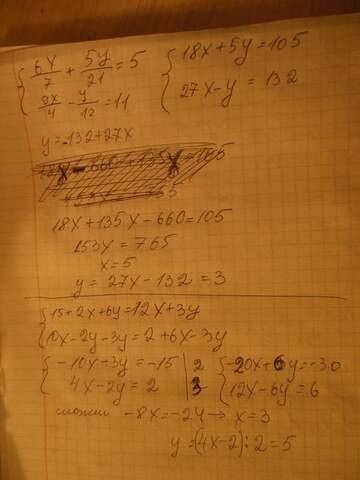 6x/7 + 5y/21 = 5
9x/4 - y/12 = 11
18x+5y=105
27x-y = 132
y=-132+27x
18x+135x-660=105
153x = 765
x=5
y = 27x-132 = 3
15+2x+6y=12x+3y
10x-2y-3y=2+6x-3y
-10x+3y=-15 | 2
4x-2y=2 | 3
-20x+6y=-30
12x-6y=6
сложим -8x=-24 → x=3
y=(4x-2):2=5